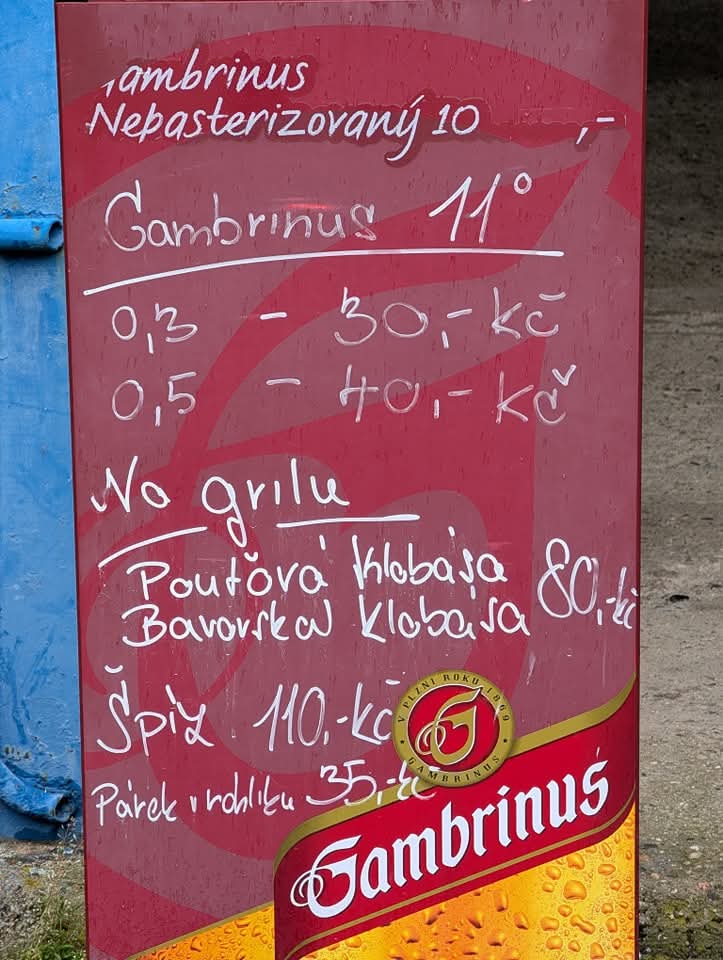 Gambrinus
Nepasterizovaný 10 ,-
Gambrinus 11°
0,3 - 30,- kč
0,5 - 40,- kč
Na grilu
Pouťová klobása 80,-kč
Bavorská klobása
Špíz 110,-kč
Párek v rohlíku 35,-kč
V PLZNI ROKU 1869
GAMBRINUS
Gambrinus